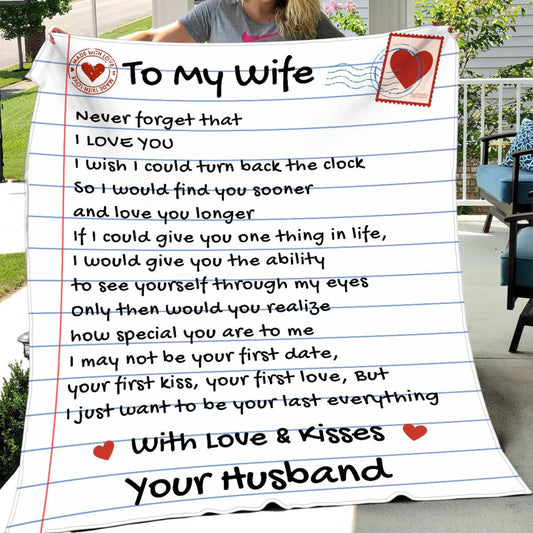 MADE WITH LOVE MADE WITH LOVE
To My Wife
Never forget that
I LOVE YOU
I wish I could turn back the clock
So I would find you sooner
and love you longer
If I could give you one thing in life,
I would give you the ability
to see yourself through my eyes
Only then would you realize
how special you are to me
I may not be your first date,
your first kiss, your first love, But
I just want to be your last everything
With Love & Kisses
Your Husband